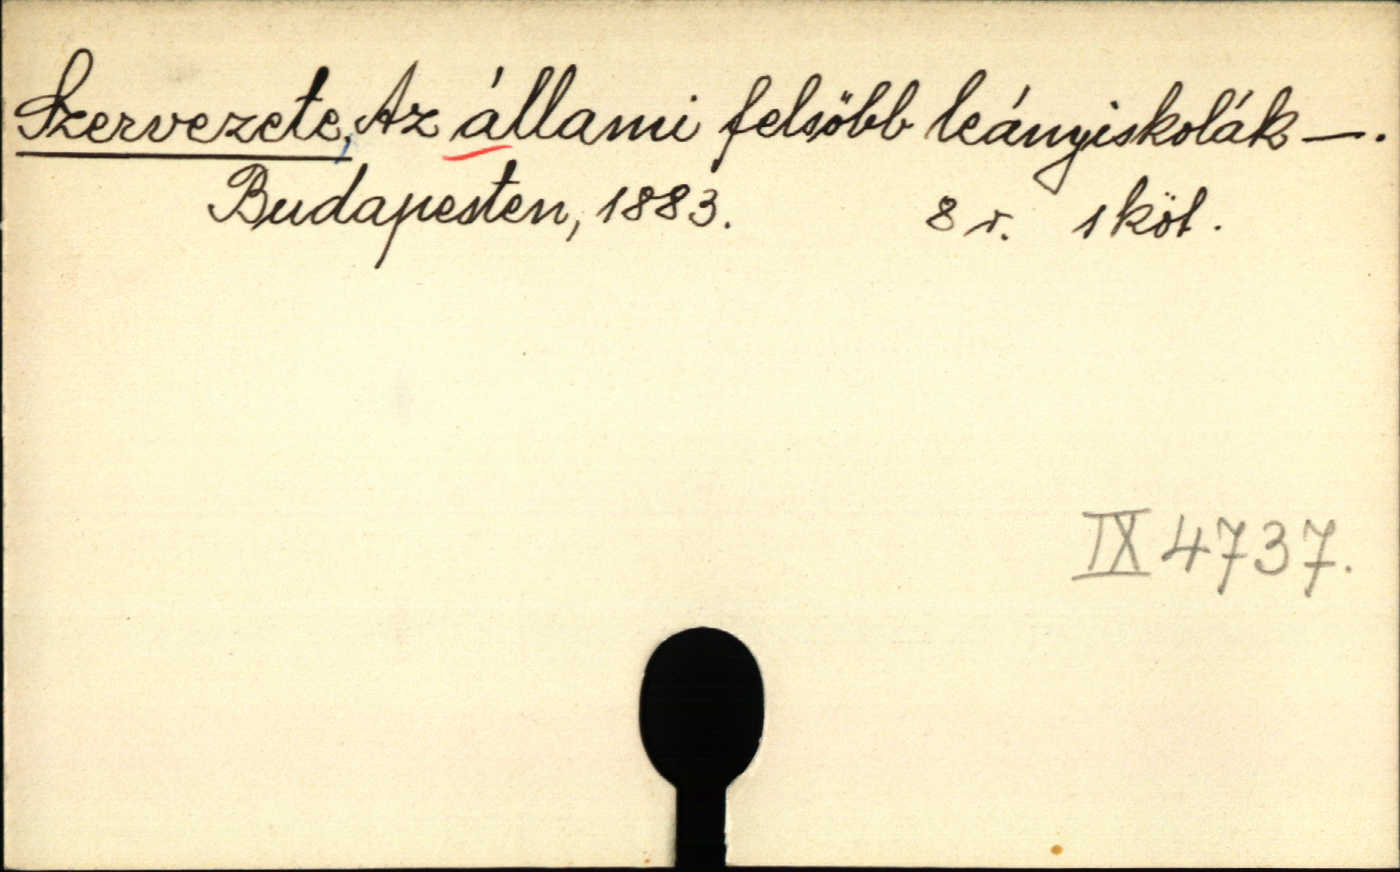 Szervezete, Az állami felsőbb leányiskolák —.
Budapesten, 1883. 8 r. 1 köt.
IX 4737.